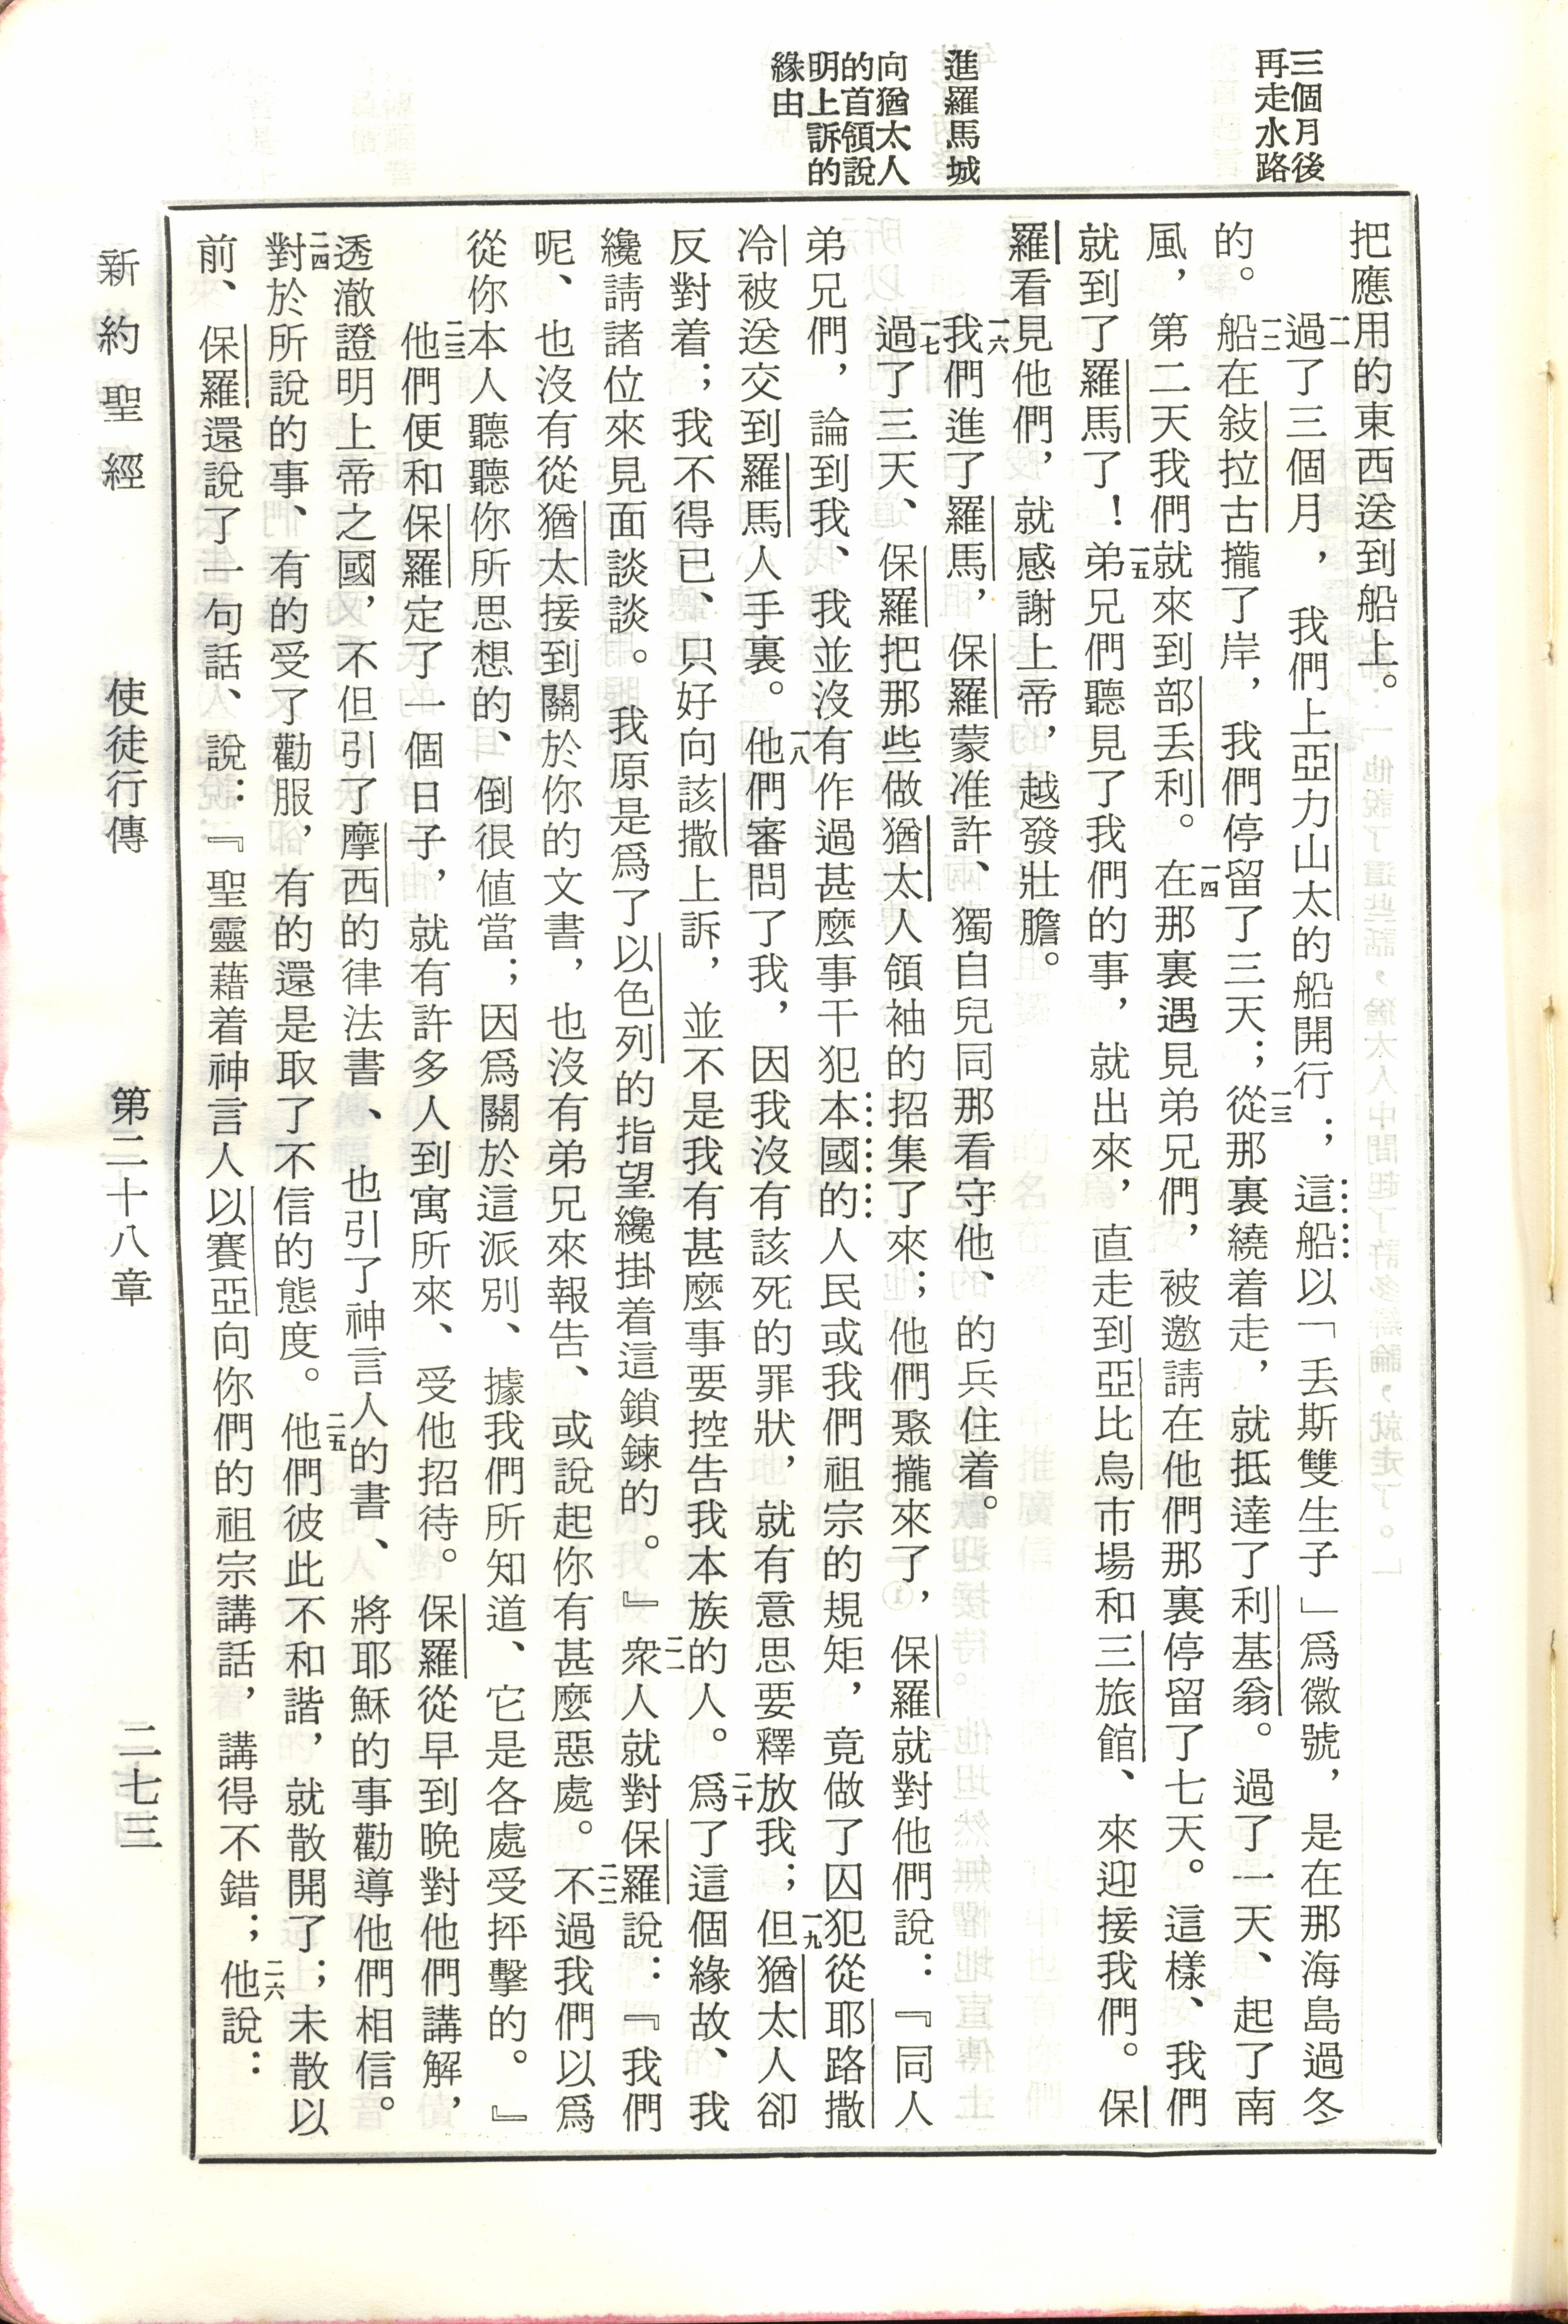 三個月後
再走水路
進羅馬城
向猶太人
的首領說
明上訴的
緣由
把應用的東西送到船上。
一一過了三個月，我們上亞力山太的船開行；這船以「丢斯雙生子」爲徽號，是在那海島過冬
的。一二船在敍拉古攏了岸，我們停留了三天；一三從那裏繞着走，就抵達了利基翁。過了一天、起了南
風，第二天我們就來到部丢利。一四在那裏遇見弟兄們，被邀請在他們那裏停留了七天。這樣、我們
就到了羅馬了！一五弟兄們聽見了我們的事，就出來，直走到亞比烏市場和三旅館、來迎接我們。保
羅看見他們，就感謝上帝，越發壯膽。
一六我們進了羅馬，保羅蒙准許、獨自兒同那看守他、的兵住着。
一七過了三天、保羅把那些做猶太人領袖的招集了來；他們聚攏來了，保羅就對他們說：『同人
弟兄們，論到我、我並沒有作過甚麼事干犯本國的人民或我們祖宗的規矩，竟做了囚犯從耶路撒
冷被送交到羅馬人手裏。一八他們審問了我，因我沒有該死的罪狀，就有意思要釋放我；一九但猶太人卻
反對着；我不得已、只好向該撒上訴，並不是我有甚麼事要控告我本族的人。二十爲了這個緣故、我
纔請諸位來見面談談。我原是爲了以色列的指望纔掛着這鎖鍊的。』二一衆人就對保羅說：『我們
呢、也沒有從猶太接到關於你的文書，也沒有弟兄來報告、或說起你有甚麼惡處。二二不過我們以爲
從你本人聽聽你所思想的、倒很值當；因爲關於這派別、據我們所知道、它是各處受抨擊的。』
二三他們便和保羅定了一個日子，就有許多人到寓所來、受他招待。保羅從早到晚對他們講解，
透澈證明上帝之國，不但引了摩西的律法書、也引了神言人的書、將耶穌的事勸導他們相信。
二四對於所說的事、有的受了勸服，有的還是取了不信的態度。二五他們彼此不和諧，就散開了；未散以
前、保羅還說了一句話、說：『聖靈藉着神言人以賽亞向你們的祖宗講話，講得不錯；二六他說：
新約聖經　使徒行傳　第二十八章　二七三